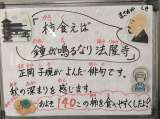 柿食えば
鐘が鳴るなり法隆寺
正岡子規がよんだ俳句です。
秋の深まりを感じます。
140この柿を食べやすくしよう